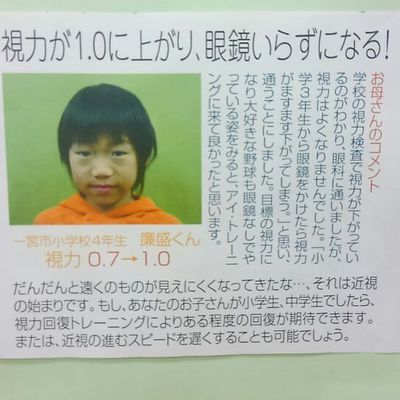 視力が1.0に上がり、眼鏡いらずになる!
お母さんのコメント
学校の視力検査で視力が下がってい
るのがわかり、眼科に通いましたが、
視力はよくなりませんでした。「小
学3年生から眼鏡をかけたら視力
がますます下がってしまう。」と思い、
通うことにしました。目標の視力に
なり大好きな野球も眼鏡なしでや
っている姿をみると、アイ・トレーニ
ングに来て良かったと思います。
一宮市小学校4年生 廉盛くん
視力 0.7→1.0
だんだんと遠くのものが見えにくくなってきたな…、それは近視
の始まりです。もし、あなたのお子さんが小学生、中学生でしたら、
視力回復トレーニングによりある程度の回復が期待できます。
または、近視の進むスピードを遅くすることも可能でしょう。